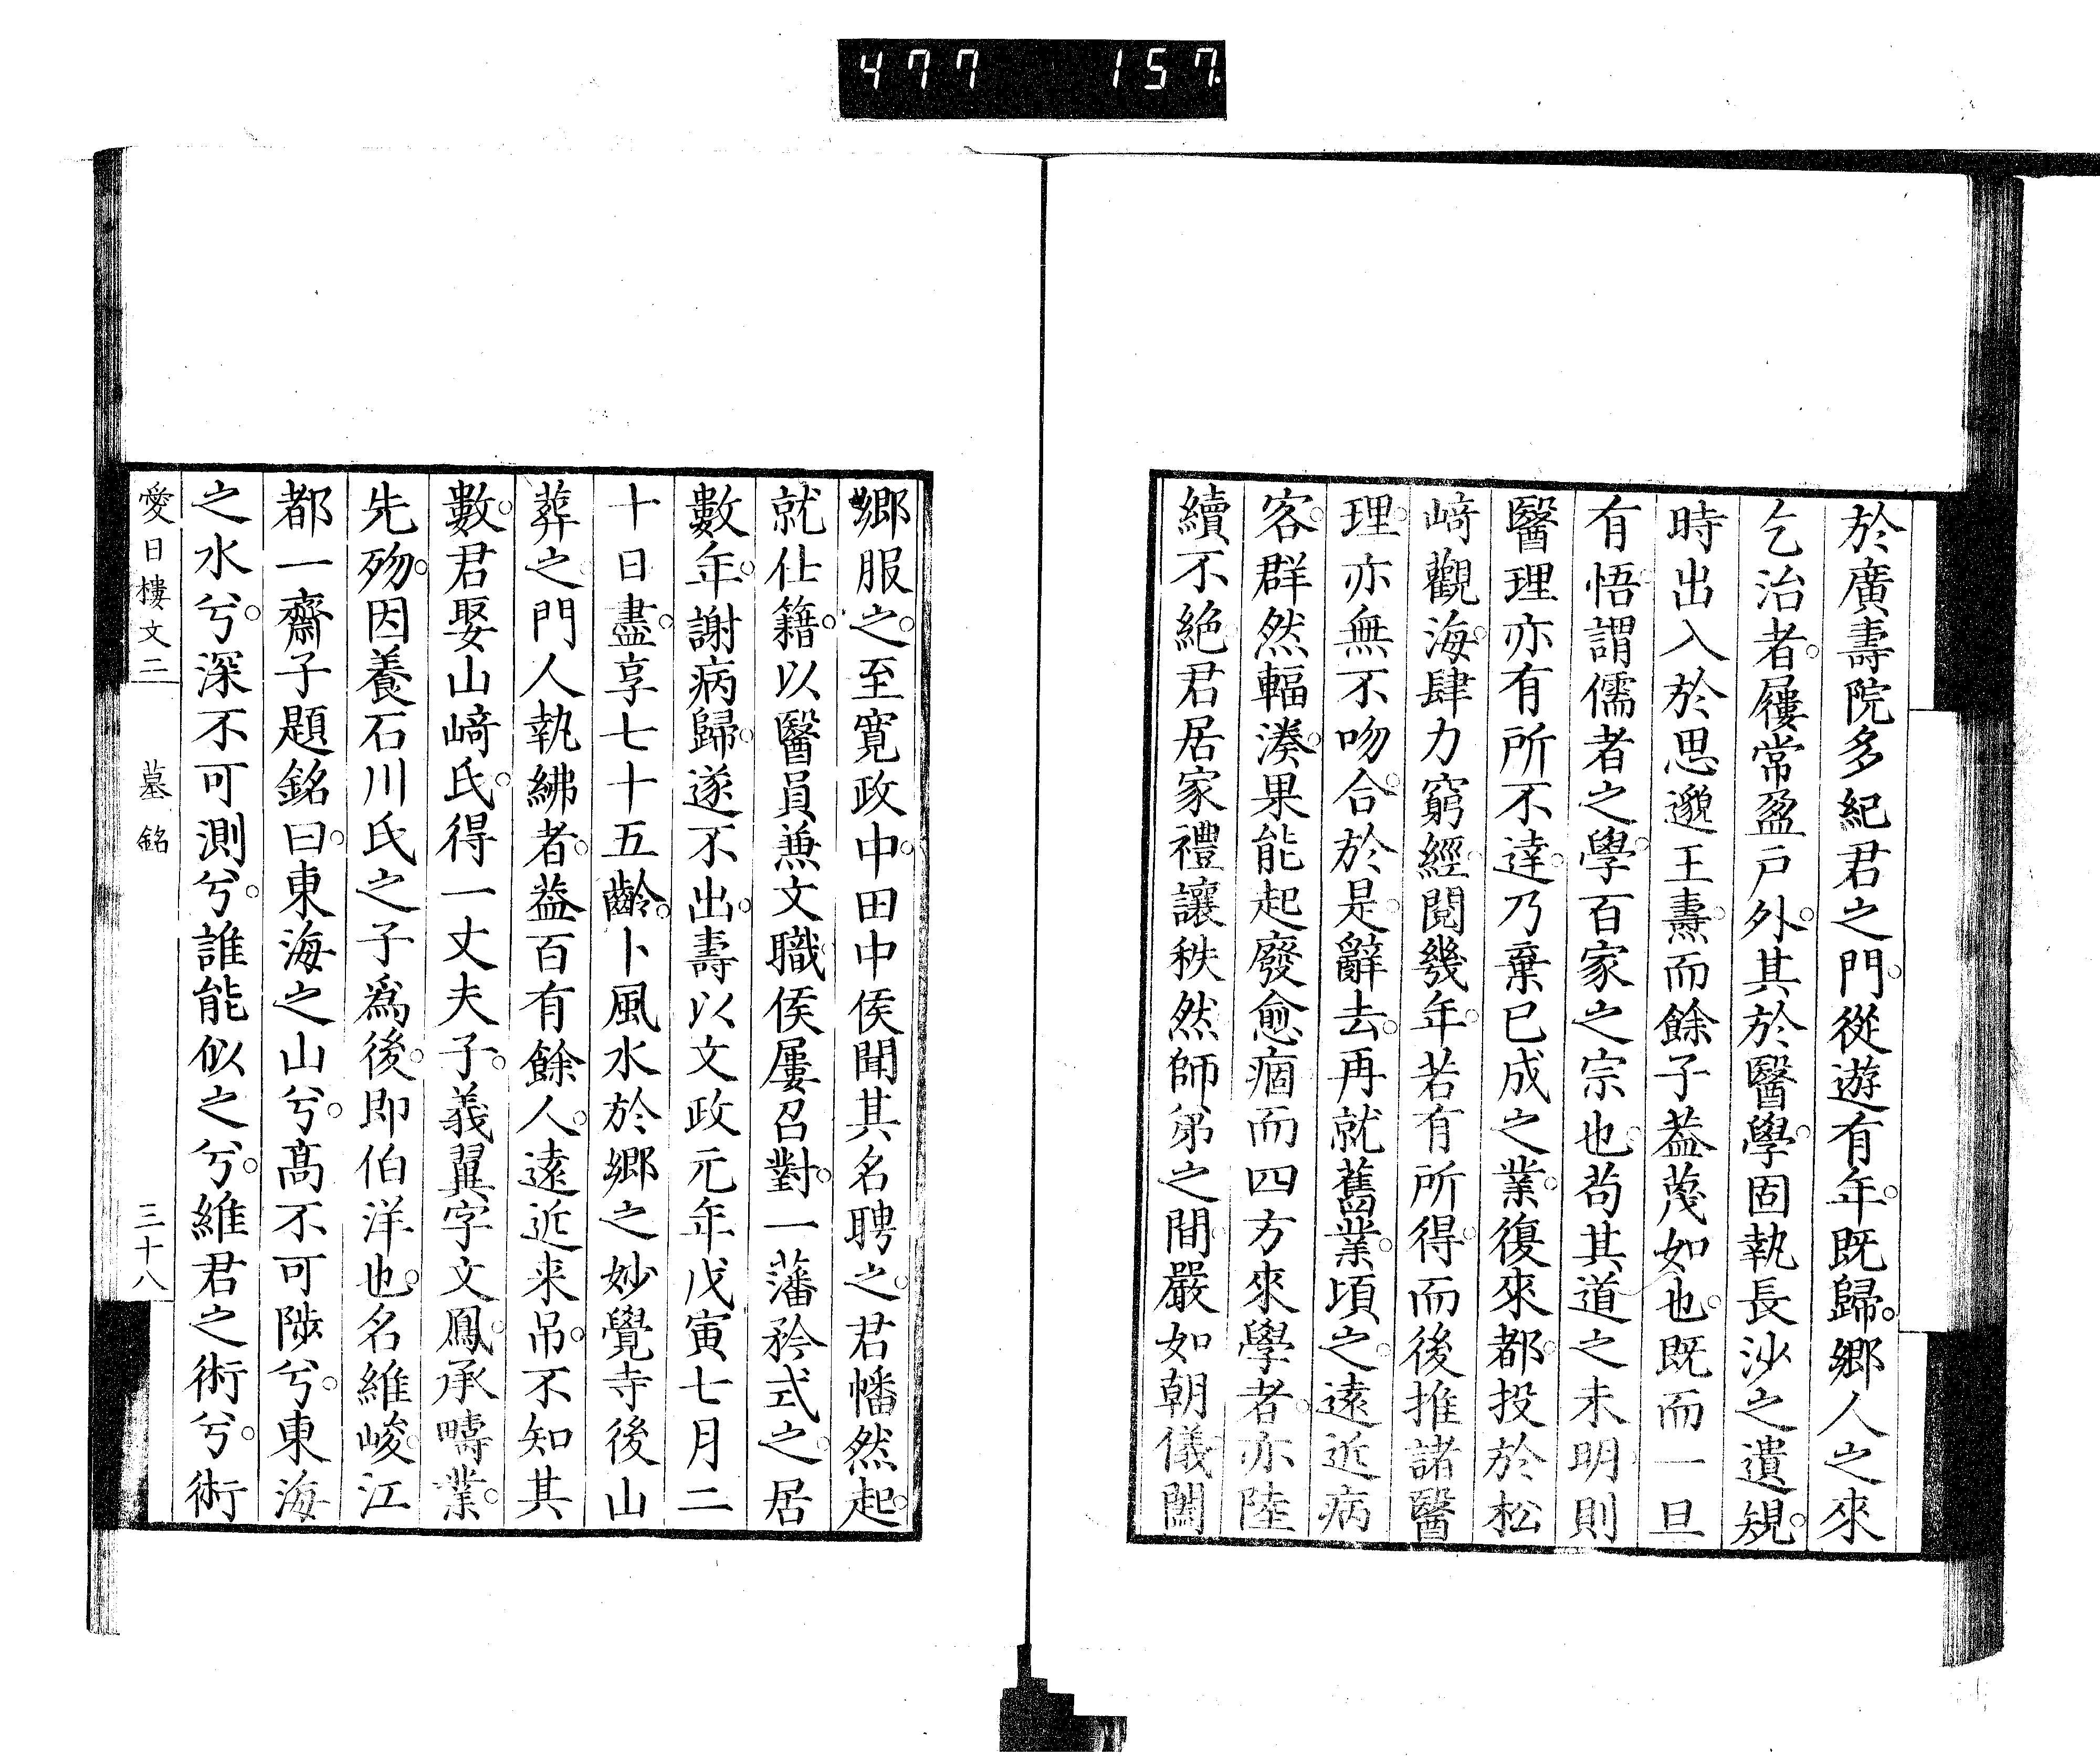 477 157.
於廣壽院多紀君之門。從遊有年。既歸。郷人之來
乞治者。屨常盈戸外。其於醫學。固執長沙之遺規。
時出入於思邈王燾。而餘子葢蔑如也。既而一旦
有悟。謂儒者之學。百家之宗也。苟其道之未明。則
醫理亦有所不達。乃棄已成之業。復來都。投於松
﨑觀海。肆力窮經。閲幾年。若有所得。而後推諸醫
理。亦無不吻合。於是。辭去。再就舊業。頃之。遠近病
客。群然輻湊。果能起廢愈痼。而四方來學者。亦陸
續不絶。君居家禮讓秩然。師弟之間。嚴如朝儀。闔
郷服之。至寛政中。田中侯聞其名聘之。君幡然起。
就仕籍。以醫員兼文職。侯屢召對。一藩矜式之。居
數年。謝病歸。遂不出。壽以文政元年戊寅七月二
十日盡。享七十五齡。卜風水於郷之妙覺寺後山
葬之。門人執紼者。葢百有餘人。遠近来吊。不知其
數。君娶山﨑氏。得一丈夫子。義翼字文鳳。承疇業。
先歾。因養石川氏之子爲後。即伯洋也。名維峻。江
都一齋子題銘曰。東海之山兮。髙不可陟兮。東海
之水兮。深不可測兮。誰能似之兮。維君之術兮。術
愛日樓文二 墓銘 三十八